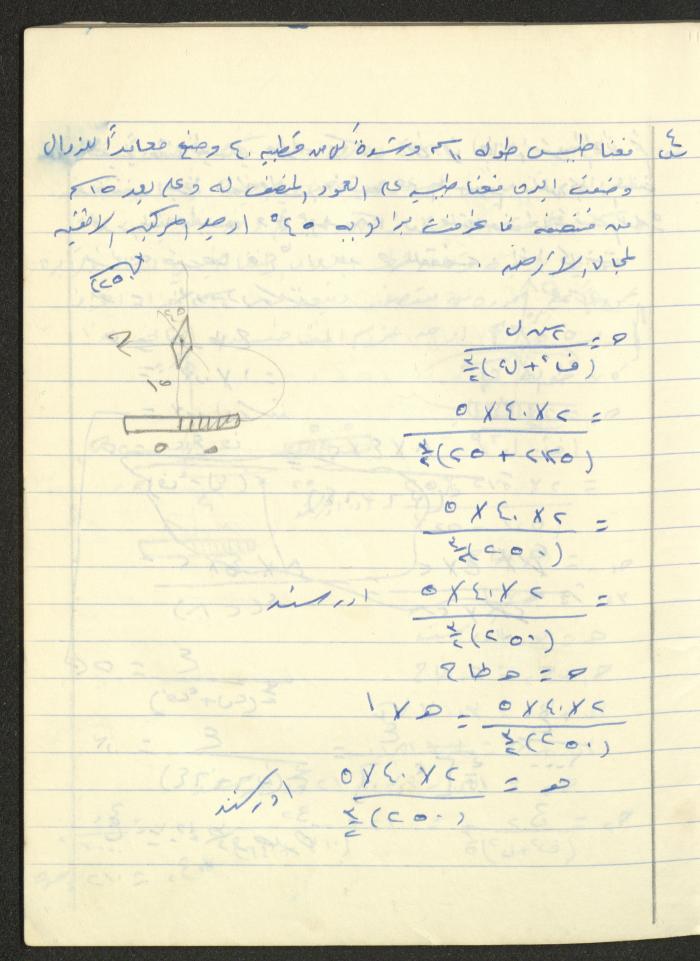 س٤ مغناطيس طوله ١٠سم وشدة كل من قطبيه ٤٠ وضع معامداً للزوال
وضعت ابرة مغناطيسية على العمود المنصف له وعلى بعد ١٥سم
من منتصفه فانحرفت بزاوية ٤٥° اوجد المركبة الافقية
لمجال الارض .
ح = ٢ س ل / (ف٢ + ل٢)٣/٢
٤٥
١٥
= ٢ × ٤٠ × ٥ / (٢٢٥ + ٢٥)٣/٢
٥ ٥
= ٢ × ٤٠ × ٥ / (٢٥٠)٣/٢
= ٢ × ٤٠ × ٥ / (٢٥٠)٣/٢ اورستد
ح = ه ظا ح
٢ × ٤٠ × ٥ / (٢٥٠)٣/٢ = ه × ١
ه = ٢ × ٤٠ × ٥ / (٢٥٠)٣/٢ اورستد